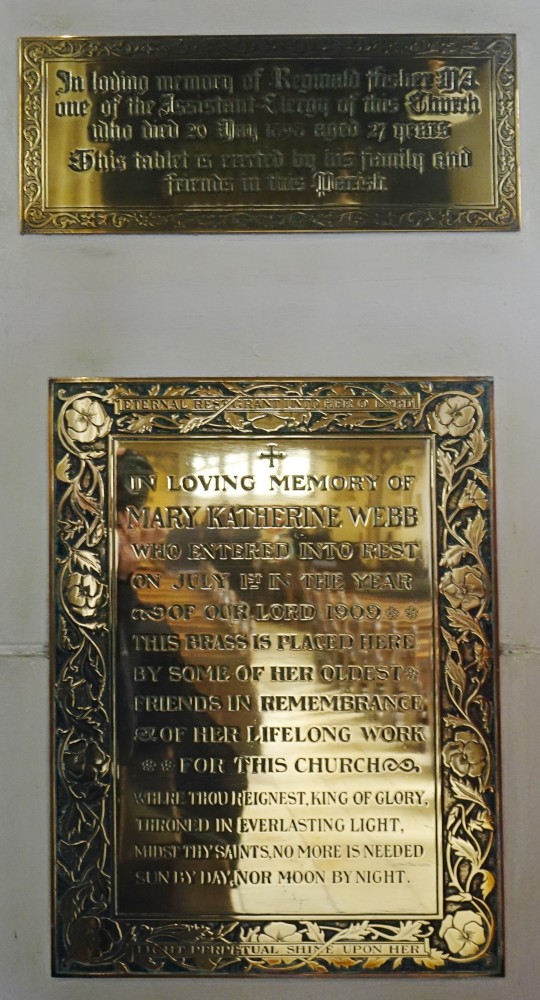 In loving memory of Reginald Fisher MA
one of the Assistant-Clergy of this Church
who died 20 May aged 27 years
This tablet is erected by his family and
friends in this Parish.
ETERNAL REST GRANT UNTO HER O LORD
IN LOVING MEMORY OF
MARY KATHERINE WEBB
WHO ENTERED INTO REST
ON JULY 1ST IN THE YEAR
OF OUR LORD 1909
THIS BRASS IS PLACED HERE
BY SOME OF HER OLDEST
FRIENDS IN REMEMBRANCE
OF HER LIFELONG WORK
FOR THIS CHURCH
WHERE THOU REIGNEST, KING OF GLORY,
THRONED IN EVERLASTING LIGHT,
MIDST THY SAINTS, NO MORE IS NEEDED
SUN BY DAY, NOR MOON BY NIGHT.
LIGHT PERPETUAL SHINE UPON HER